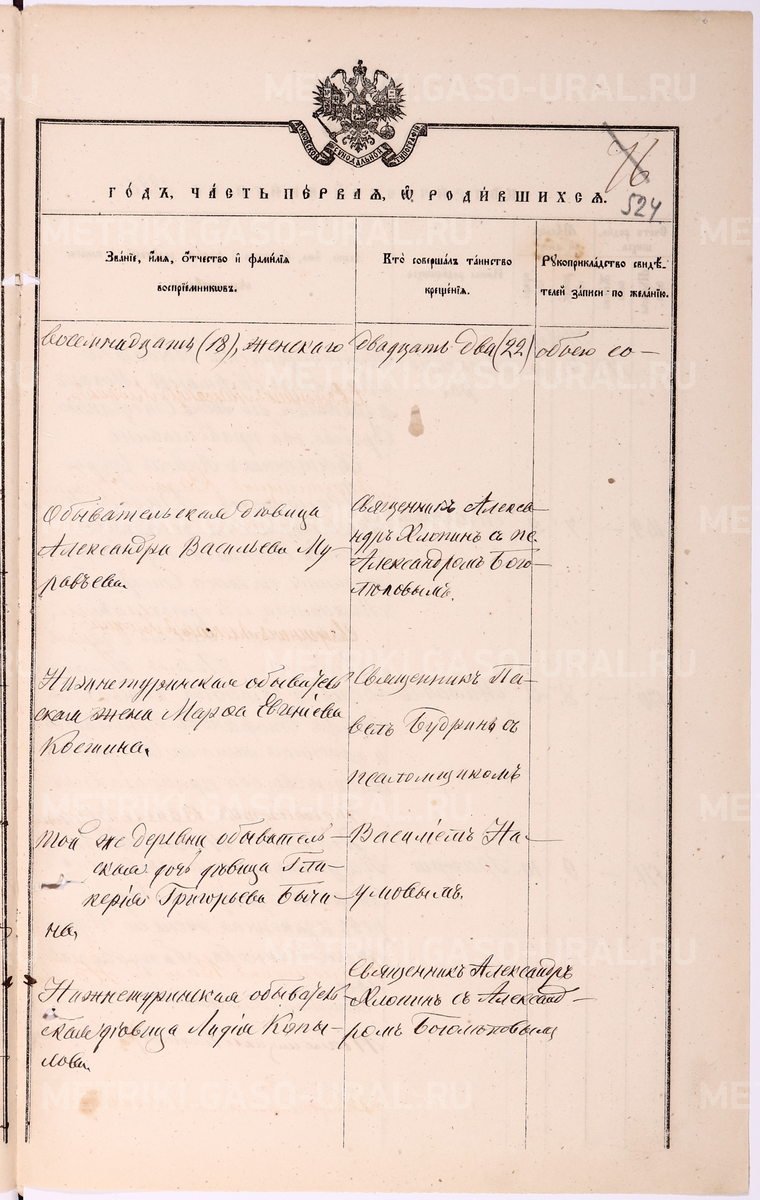 METRIKI.GASO-URAL.RU
МОСКОВСКОЙ СѴНОДАЛЬНОЙ ТИПОГРАФІИ
76
524
ГОДЪ, ЧАСТЬ ПЕРВАЯ, Ѡ РОДИВШИХСЯ.
Званіе, имя, отчество и фамилія
воспріемникωвъ.
Кто совершалъ таинство
крещенія.
Рукоприкладство свидѣ-
телей записи по желанію.
восемнадцать (18), женскаго двадцать два (22) обоего со-
Обывательская дѣвица
Александра Васильева Му-
равьева.
Священникъ Алекса-
ндръ Хлопинъ съ пс.
Александромъ Бого-
люповымъ.
Нижнетуринская обыватель
ская жена Марѳа Евгеніева
Костина.
Священникъ Па-
велъ Будринъ съ
псаломщикомъ
Василіемъ На-
умовымъ.
Той же деревни обыватель-
ская дочь дѣвица Гли-
керія Григорьева Бычи-
на.
Нижнетуринская обыватель
ская дѣвица Лидія Копы-
лова.
Священникъ Александръ
Хлопинъ съ Александ-
ромъ Боголюповымъ